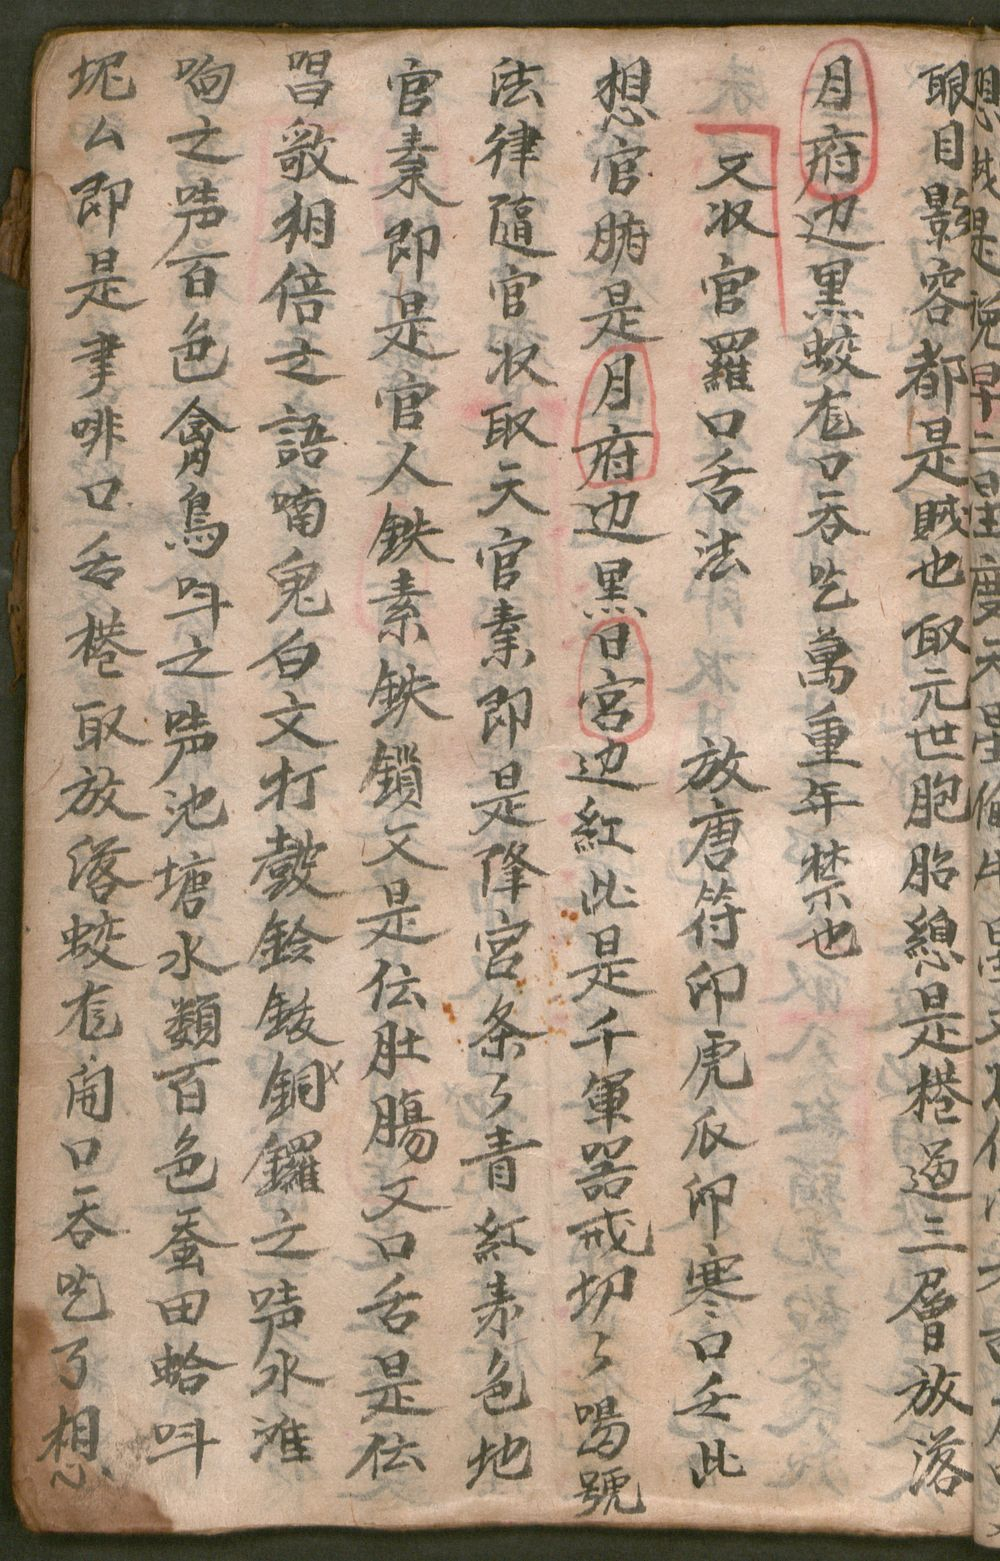 眼目影容都是賊也取元世胞胎總是棬過三層放落
月府边黑蛟虎口吞吃萬重年禁也
又收官羅口舌法 放唐符印虎爪印寒口舌此
想官腑是月府边黑日宮边紅此是千軍器戒切々喝號
法律隨官收取天官素即是降宮条々青紅素色地
官素即是官人鉄素鉄鎖文是伝肚腸文口舌是伝
唱歌相倍之語喃鬼白文打鼓鈴鈸銅鑼之唠水滩
响之唠百色禽鳥呌之唠池塘水類百色蚕田蛤呌
坭厶即是聿啡口舌棬取放落蛟虎開口吞吃了想